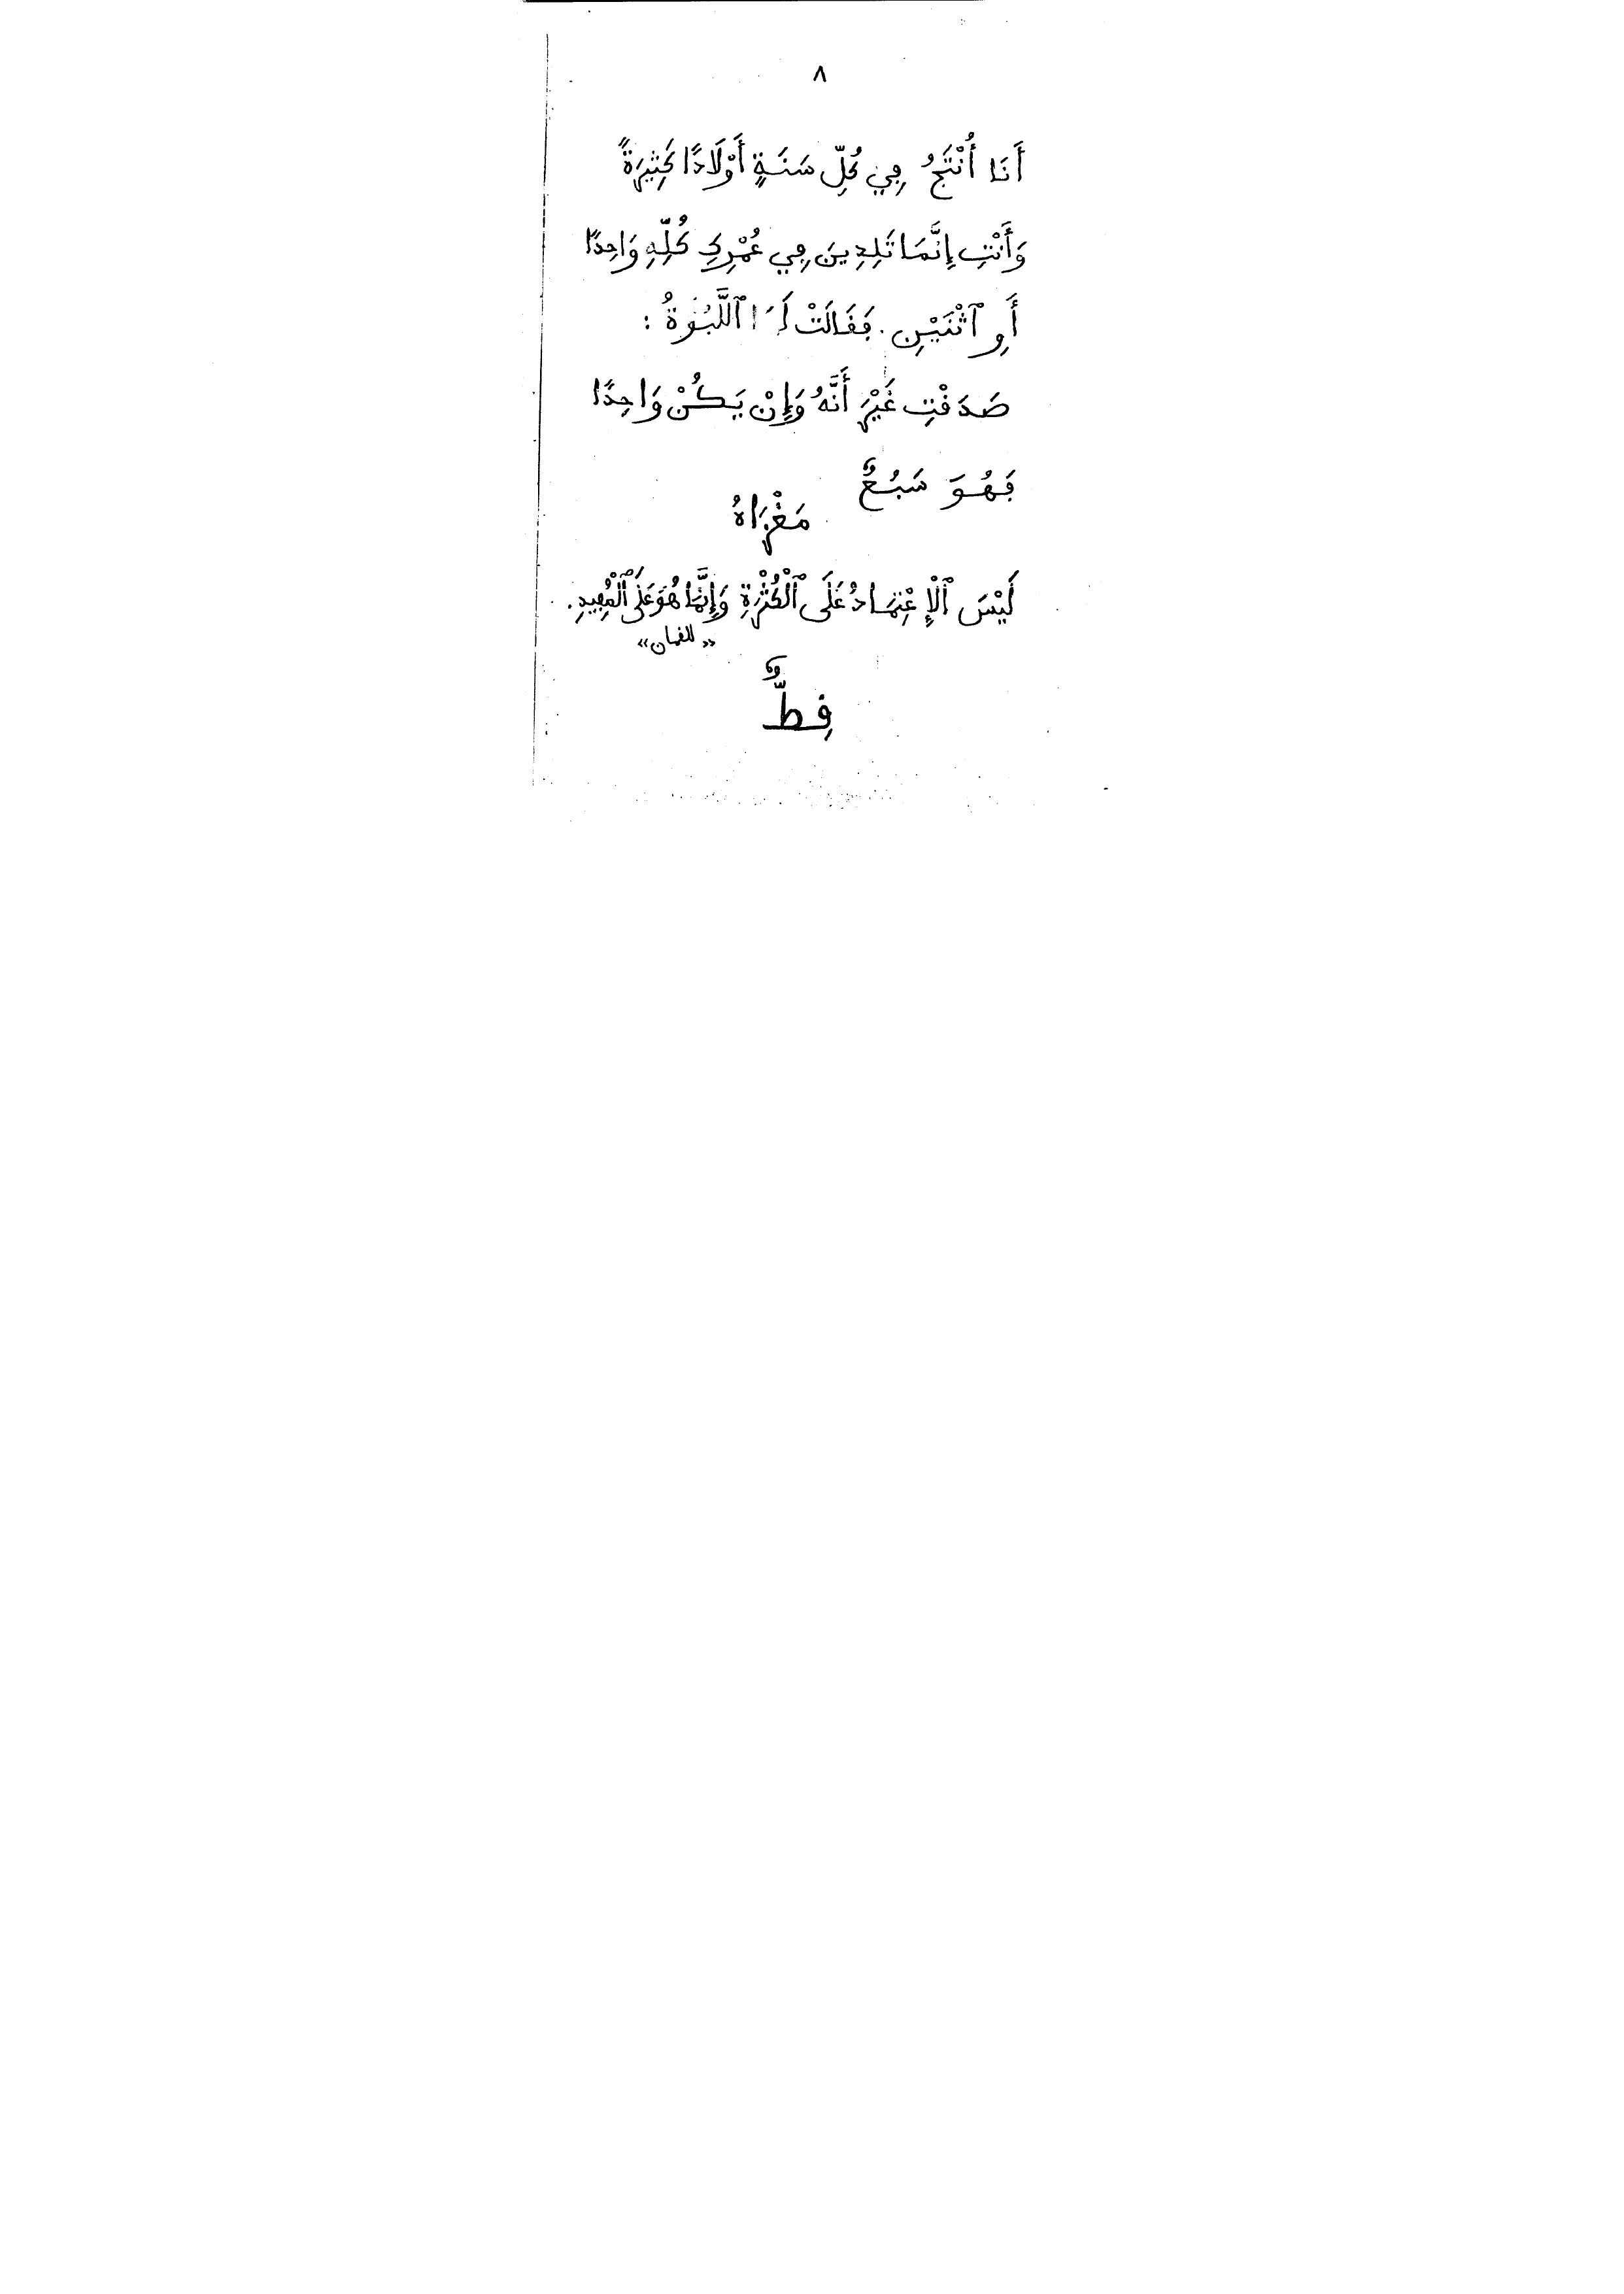 ٨
أَنَا أُنْتَجُ فِي كُلِّ سَنَةٍ أَوْلَادًا كَثِيرَةً
وَأَنْتِ إِنَّمَا تَلِدِينَ فِي عُمْرِكِ كُلِّهِ وَاحِدًا
أَوِ ٱثْنَيْنِ. فَقَالَتْ ٱللَّبُوَةُ :
صَدَقْتِ غَيْرَ أَنَّهُ وَإِنْ يَكُنْ وَاحِدًا
فَهُوَ سَبُعٌ
مَغْزَاهُ
لَيْسَ ٱلْإِعْتِمَادُ عَلَى ٱلْكُثْرَةِ وَإِنَّمَا هُوَ عَلَى ٱلْمُفِيدِ.
«للقمان»
قِطٌّ